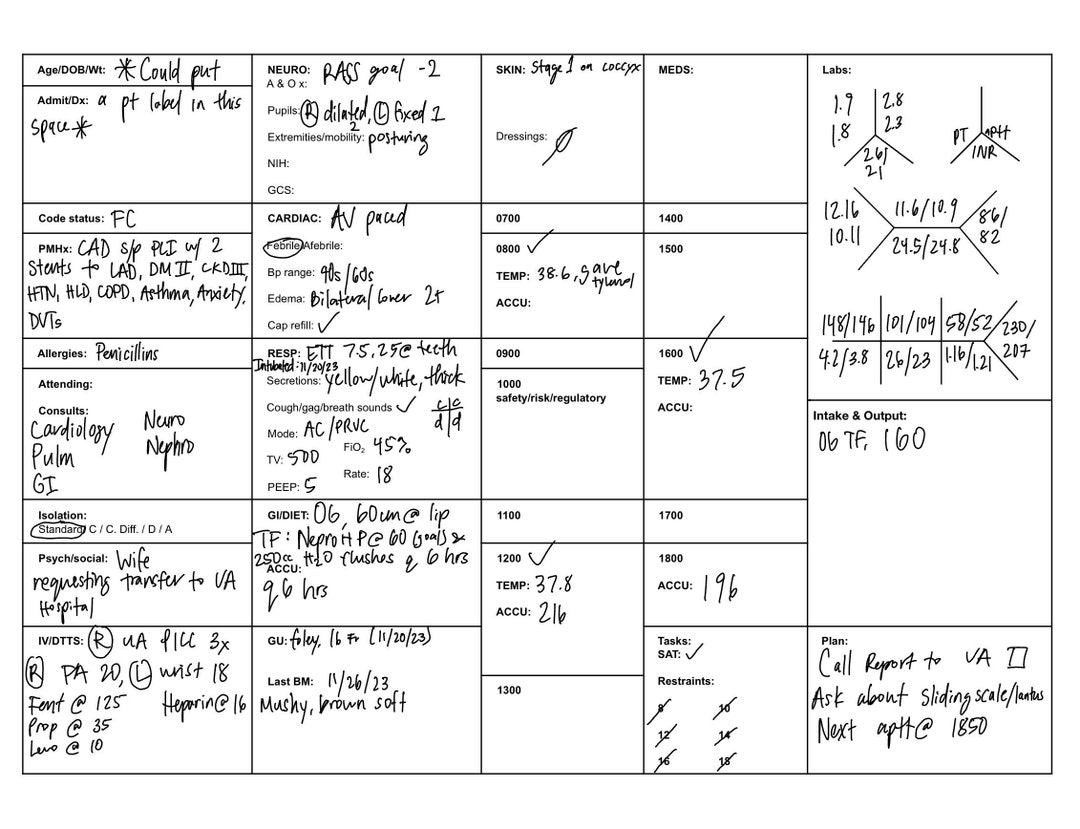 Age/DOB/Wt: * Could put
Admit/Dx: a pt label in this
space *
Code status: FC
PMHx: CAD s/p PLI w/ 2
Stents to LAD, DM II, CKDIII,
HTN, HLD, COPD, Asthma, Anxiety,
DVTs
Allergies: Penicillins
Attending:
Consults:
Cardiology Neuro
Pulm Nephro
GI
Isolation:
Standard / C / C. Diff. / D / A
Psych/social: Wife
requesting transfer to VA
Hospital
IV/DTTS: R UA PICC 3x
R PA 20, L wrist 18
Fent @ 125 Heparin @ 16
Prop @ 35
Levo @ 10
NEURO: RASS goal -2
A & O x:
Pupils: R dilated, L fixed 1
2
Extremities/mobility: posturing
NIH:
GCS:
CARDIAC: AV paced
Febrile/Afebrile:
Bp range: 90s/60s
Edema: Bilateral lower 2+
Cap refill: ✓
RESP: ETT 7.5, 25@ teeth
Intubated: 11/20/23
Secretions: yellow/white, thick
Cough/gag/breath sounds ✓ c|c
d|d
Mode: AC/PRVC
FiO2 45%
TV: 500
Rate: 18
PEEP: 5
GI/DIET: OG, 60cm@ lip
TF: Nepro HP@ 60 Goals &
250cc H2O flushes q 6 hrs
ACCU:
q6 hrs
GU: foley, 16 Fr (11/20/23)
Last BM: 11/26/23
Mushy, brown soft
SKIN: Stage 1 on coccyx
Dressings: Ø
0700
0800 ✓
TEMP: 38.6, gave
tylenol
ACCU:
0900
1000
safety/risk/regulatory
1100
1200 ✓
TEMP: 37.8
ACCU: 216
1300
MEDS:
1400
1500
1600 ✓
TEMP: 37.5
ACCU:
1700
1800
ACCU: 196
Tasks:
SAT: ✓
Restraints:
8 10
12 14
16 18
Labs:
1.9 2.8
1.8 2.3
26/
21
PT aPtt
INR
12.16 11.6/10.9 86/
10.11 24.5/24.8 82
148/146 101/104 58/52 230/
4.2/3.8 26/23 1.16/1.21 207
Intake & Output:
OG TF, 160
Plan:
Call Report to VA □
Ask about sliding scale/lantus
Next aptt@ 1850